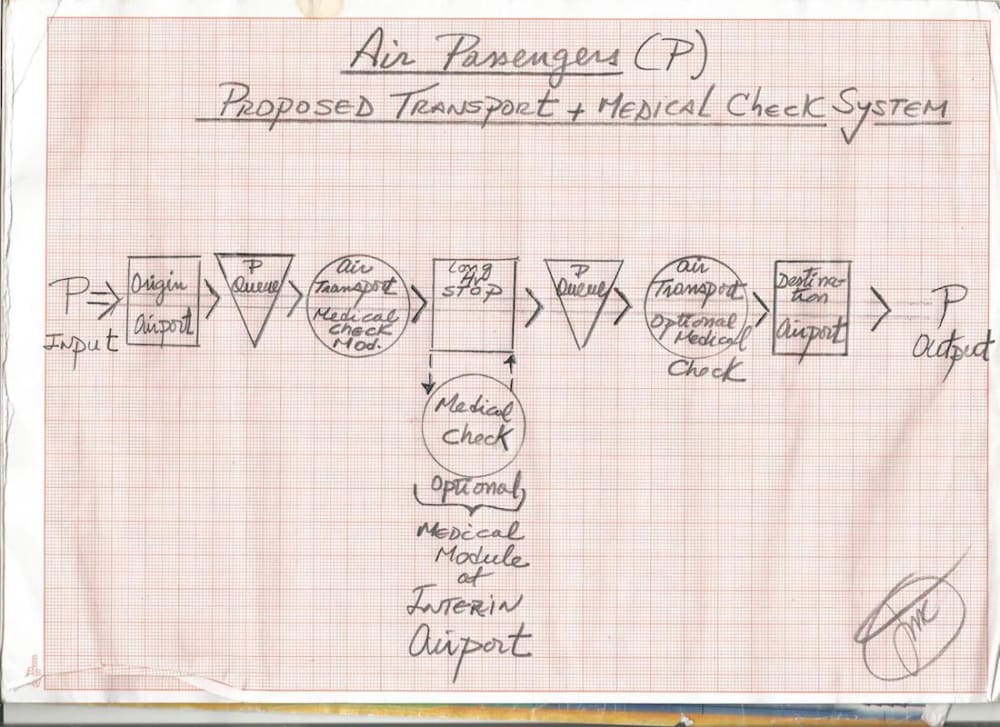 Air Passengers (P)
PROPOSED TRANSPORT + MEDICAL Check SYSTEM
P
Input
Origin
Airport
P
Queue
Air
Transport
Medical
Check
Mod.
Long
STOP
P
Queue
Air
Transport
Optional
Medical
Check
Destina-
tion
Airport
P
Output
Medical
Check
Optional
MEDical
Module
at
INTERIN
Airport